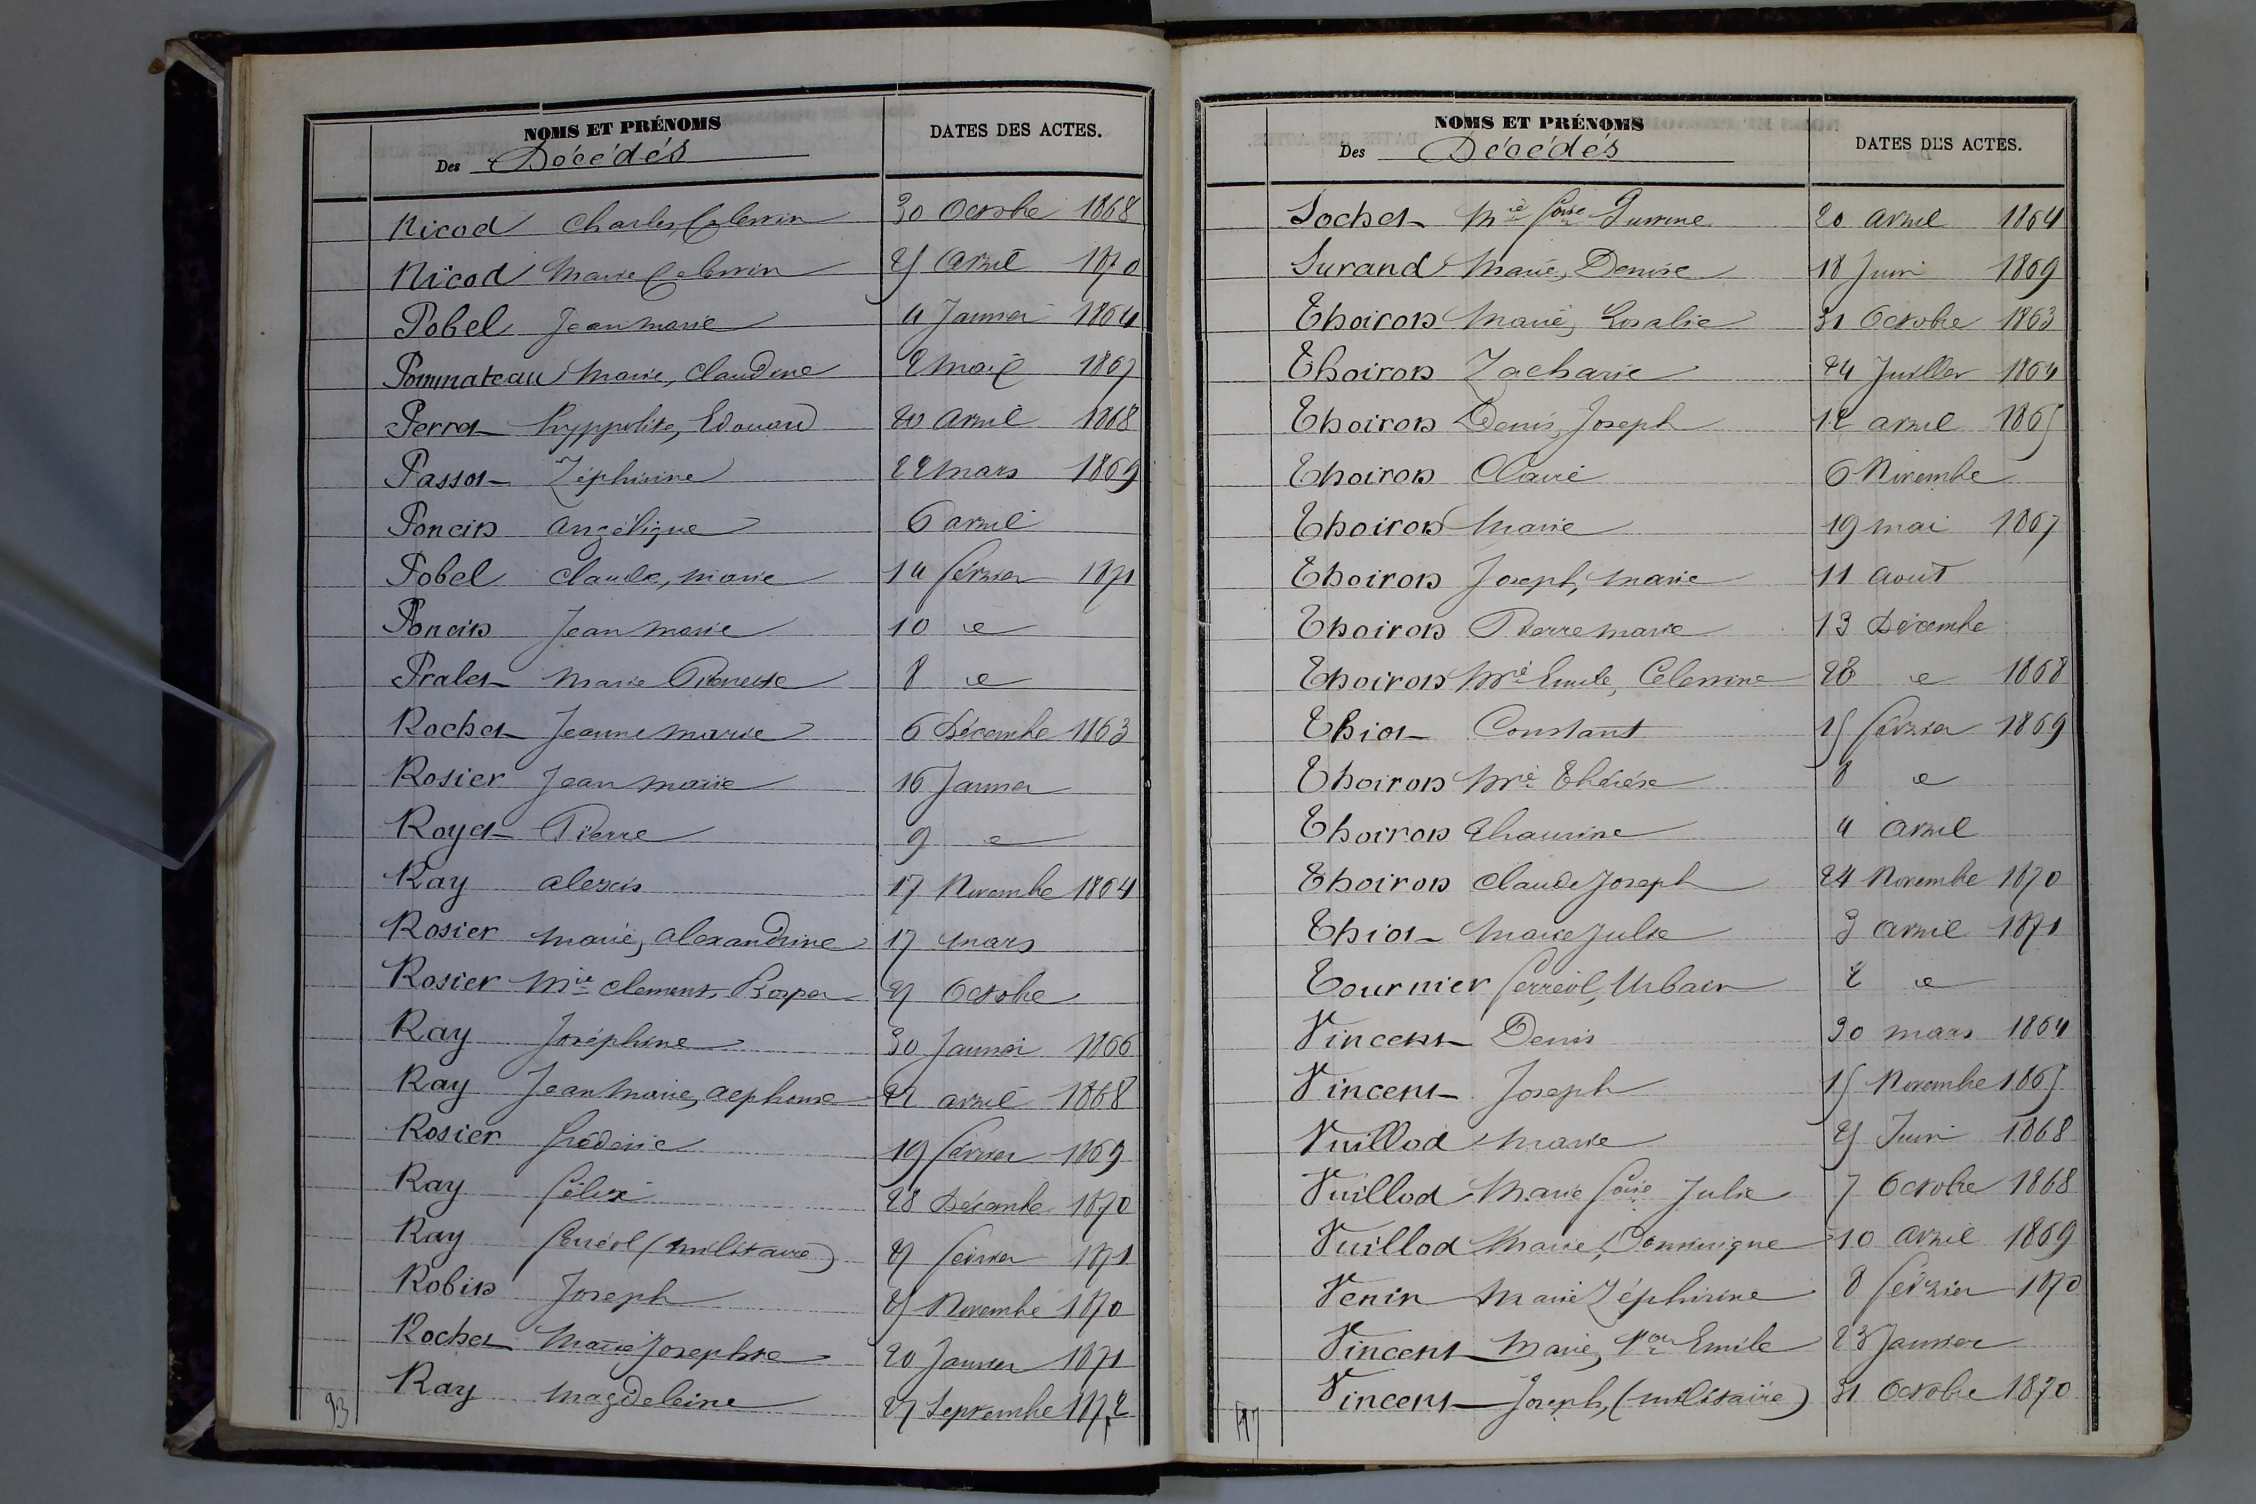 NOMS ET PRÉNOMS
Des Décédés
DATES DES ACTES.
Nicod Charles, Célestin 30 Octobre 1868
Nicod Marie Célestin 25 avril 1870
Pobel Jean marie 4 Janvier 1864
Pommateau Marie, Claudine 2 mai 1867
Perrot hyppolite, Edouard 20 avril 1868
Passot Zéphirine 22 mars 1869
Poncin angélique 6 avril
Pobel Claude, marie 14 février 1871
Poncin Jean marie 10 d
Pralet Marie 8 d
Rochet Jeanne marie 6 Décembre 1863
Rosier Jean marie 16 Janvier
Royet Pierre 9 d
Ray alexis 17 Novembre 1864
Rosier marie, alexandrine 17 mars
Rosier Mie clément, Prosper 27 Octobre
Ray Joséphine 30 Janvier 1866
Ray Jean Marie, alphonse 22 avril 1868
Rosier frédéric 19 février 1869
Ray félix 28 Décembre 1870
Ray ferréol (militaire) 27 février 1871
Robin Joseph 25 Novembre 1870
Rochet Marie Josephte 20 Janvier 1871
Ray Magdeleine 27 Septembre 1872
93
NOMS ET PRÉNOMS
Des Décédés
DATES DES ACTES.
Sochet Mie foise 20 avril 1864
Surand Marie, Denise 18 Juin 1869
Thoiron Marie, Rosalie 31 Octobre 1863
Thoiron Zacharie 24 Juillet 1864
Thoiron Denis, Joseph 12 avril 1865
Thoiron Claire 6 Novembre
Thoiron Marie 19 mai 1867
Thoiron Joseph, marie 11 aout
Thoiron Pierre marie 13 Décembre
Thoiron Mie Emile, Célestine 26 d 1868
Thiot Constant 15 février 1869
Thoiron Mie Thérèse 8 d
Thoiron 4 avril
Thoiron Claude Joseph 24 Novembre 1870
Thiot Marie Julie 3 avril 1871
Tournier ferréol, Urbain 2 d
Vincent Denis 30 mars 1864
Vincent Joseph 15 Novembre 1865
Vuillod Marie 25 Juin 1868
Vuillod Marie foise Julie 7 Octobre 1868
Vuillod Marie, Dominique 10 avril 1869
Venin Marie Zéphirine 8 février 1870
Vincent Marie, Emile 23 Janvier
Vincent Joseph, (militaire) 31 Octobre 1870